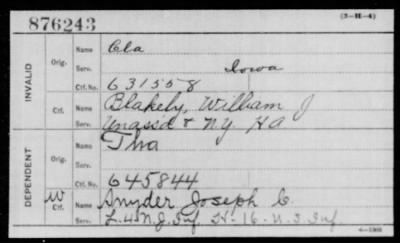 876243 (3-H-4)
INVALID
Orig. Name Cla
Serv. Iowa
Ctf. No. 631558
Ctf. Name Blakely, William J
Serv. Unass'd & N.Y. H A
DEPENDENT
Orig. Name
Serv.
Ctf. No. 645844
W Ctf. Name Snyder Joseph C.
Serv. L. 4 N.J. Inf. H-16-U.S. Inf